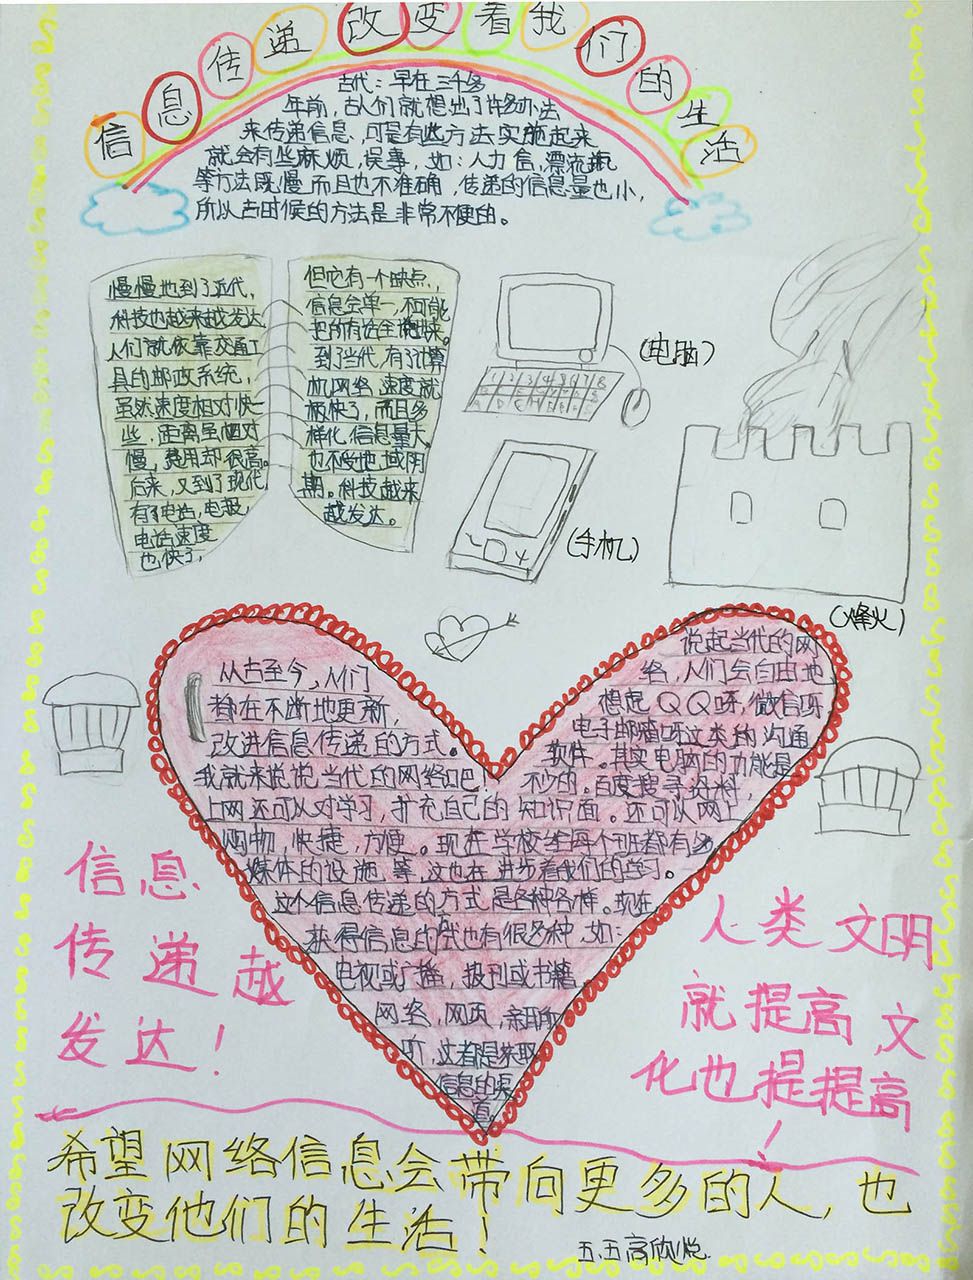 信息传递改变着我们的生活
古代：早在三千多
年前，古人们就想出了许多办法
来传递信息，可是有些方法实施起来
就会有些麻烦，误事，如：人力信，漂流瓶
等方法既慢而且也不准确，传递的信息量也小，
所以古时候的方法是非常不便的。
慢慢地到了近代，
科技也越来越发达
人们就依靠交通工
具的邮政系统，
虽然速度相对快一
些，距离虽相对
慢，费用却很高。
后来，又到了现代，
有了电话，电报，
电话速度
也快了，
但它有一个缺点，
信息会单一，不可能
把所有话全说出来。
到了当代，有了计算
机网络，速度就
极快了，而且多
样化，信息量大。
也不受地域限
期。科技越来
越发达。
(电脑)
(手机)
(烽火)
从古至今，人们
都在不断地更新，
改进信息传递的方式。
我就来说说当代的网络吧！
上网还可以对学习，扩充自己的知识面。还可以网上
购物，快捷，方便。现在学校给每个班都有多
媒体的设施等，这也在进步着我们的学习。
这个信息传递的方式是各种各样。现在，
获得信息的式也有很各种，如：
电视或广播，报刊或书籍，
网络，网页，亲耳所
听，这都是获取
信息的渠
道。
说起当代的网
络，人们会自由地
想起QQ呀，微信呀
电子邮箱呀这类的沟通
软件。其实电脑的功能是
不少的。百度搜寻资料，
信息
传递越
发达！
人类文明
就提高，文
化也提提高
！
希望网络信息会带向更多的人，也
改变他们的生活！
五.五高欣悦